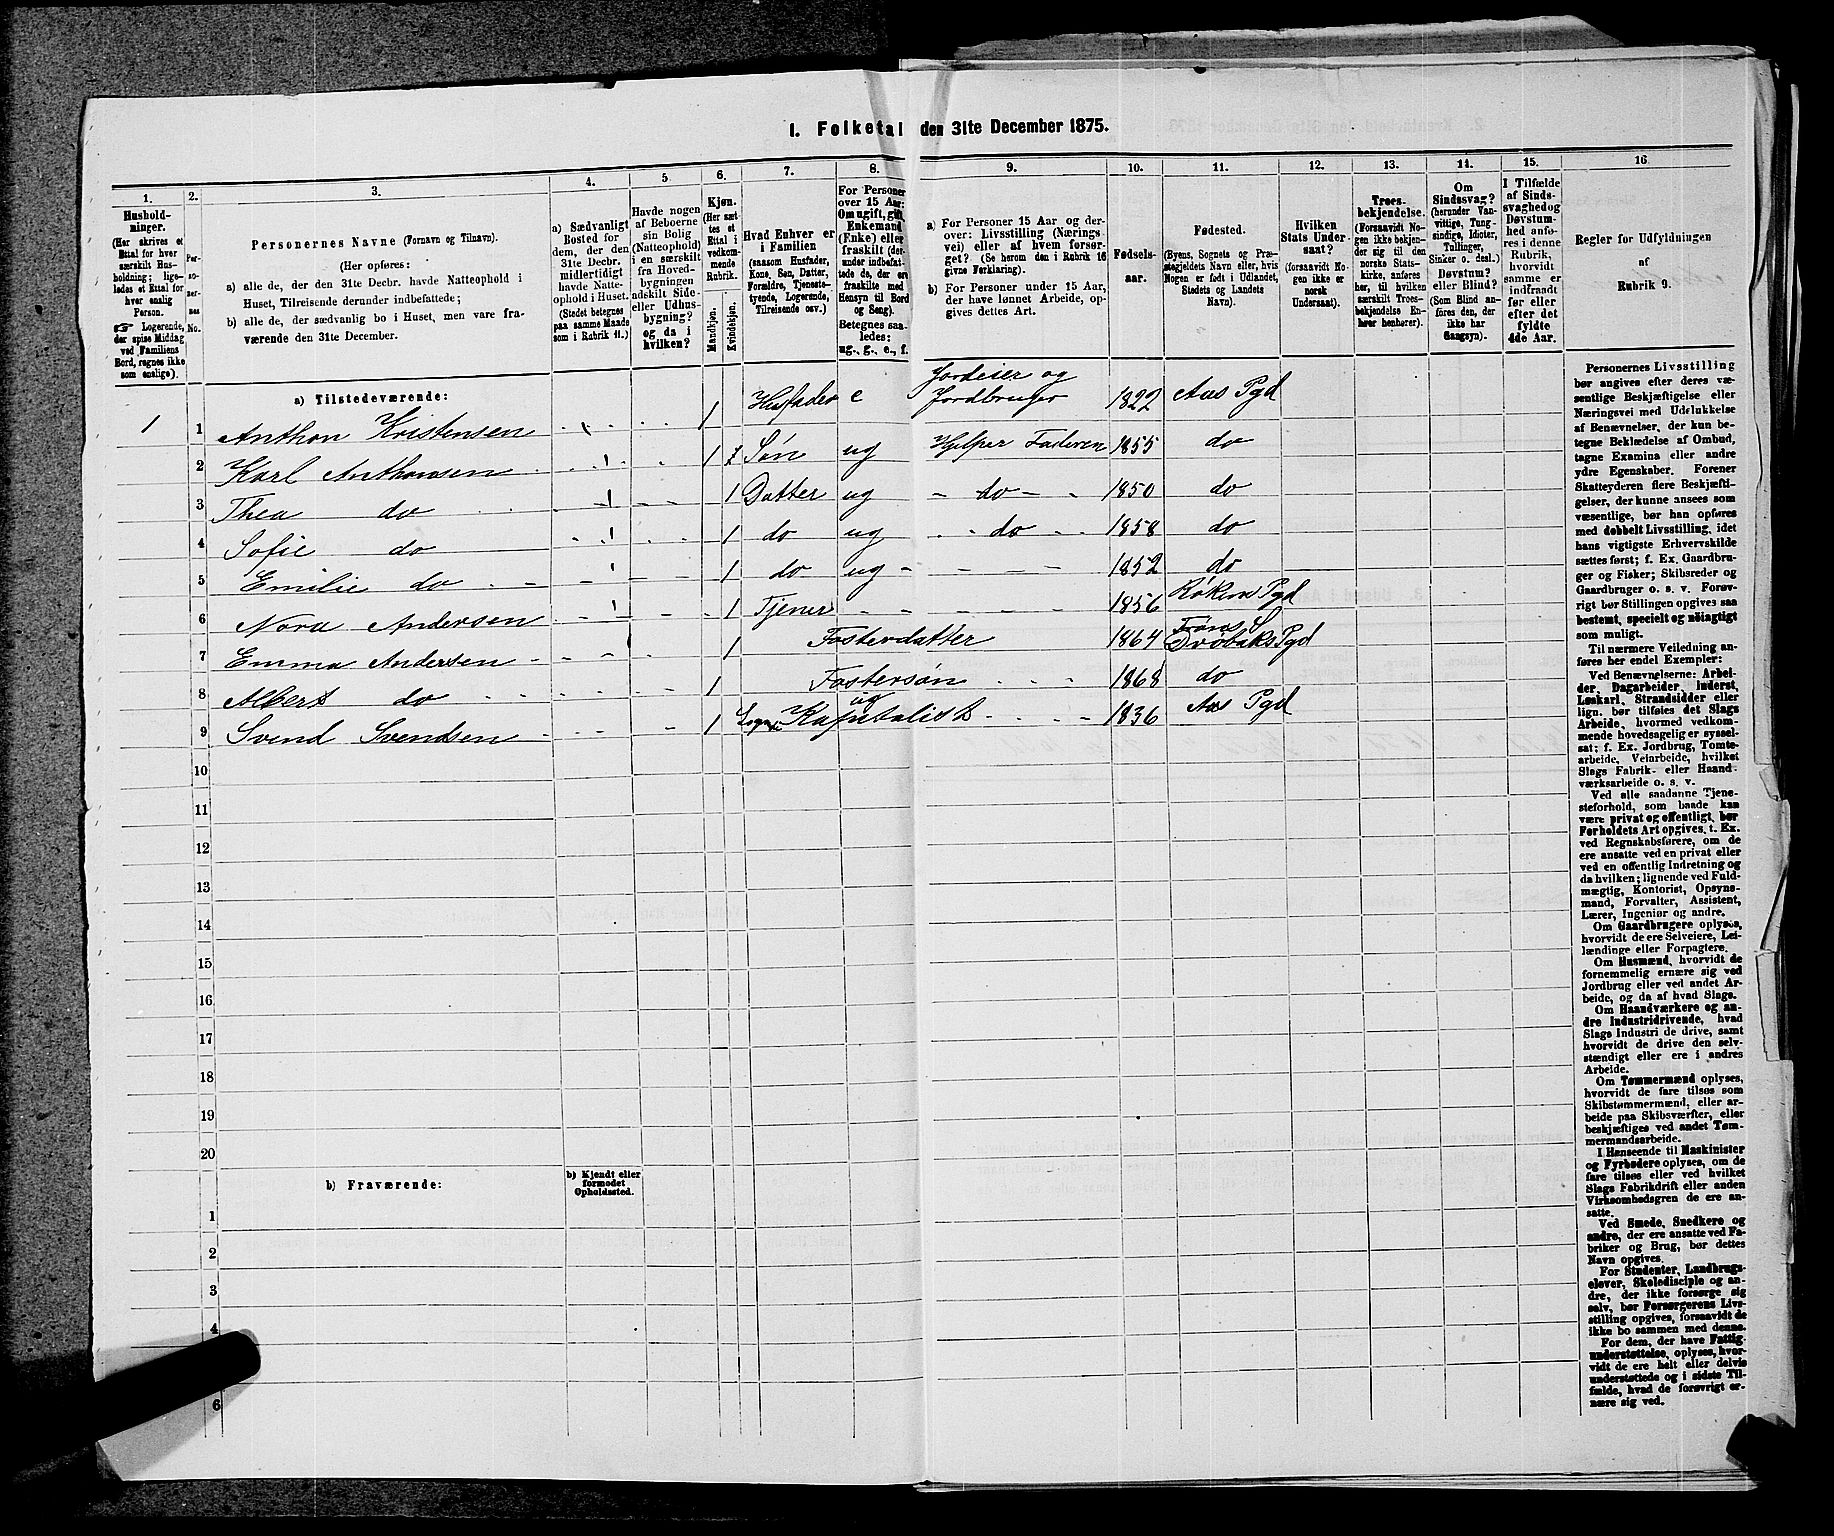 I. Folketal den 31te December 1875.
1. 2. 3. 4. 5. 6. 7. 8. 9. 10. 11. 12. 13. 14. 15. 16.
Hushold-
ninger.
(Her skrives et
Ettal for hver
særskilt Hus-
holdning; lige-
ledes et Ettal for
hver enslig
Person.
☞ Logerende,
der spise Middag
ved Familiens
Bord, regnes ikke
som enslige).
Per-
so-
ner-
nes
No.
Personernes Navne (Fornavn og Tilnavn).
(Her opføres:
a) alle de, der den 31te Decbr. havde Natteophold i
Huset, Tilreisende derunder indbefattede;
b) alle de, der sædvanlig bo i Huset, men vare fra-
værende den 31te December.
a) Sædvanligt
Bosted for
dem, der den
31te Decbr.
midlertidigt
havde Natte-
ophold i Huset.
(Stedet betegnes
paa samme Maade
som i Rubrik 11.)
Havde nogen
af Beboerne
sin Bolig
(Natteophold)
i en særskilt
fra Hoved-
bygningen
adskilt Side-
eller Udhus-
bygning?
og da i
hvilken?
Kjøn.
(Her sæt-
tes et
Ettal i
vedkom-
mende
Rubrik.
Mandkjøn.
Kvindekjøn.
Hvad Enhver er
i Familien
(saasom Husfader,
Kone, Søn, Datter,
Forældre, Tjeneste-
tyende, Logerende,
Tilreisende osv.)
For Personer
over 15 Aar:
Om ugift, gift,
Enkemand
(Enke) eller
fraskilt (der-
under indbefat-
tede de, der ere
fraskilte med
Hensyn til Bord
og Seng).
Betegnes saa-
ledes:
ug., g., e., f.
a) For Personer 15 Aar og der-
over: Livsstilling (Nærings-
vei) eller af hvem forsør-
get? (Se herom den i Rubrik 16
givne Forklaring).
b) For Personer under 15 Aar,
der have lønnet Arbeide, op-
gives dettes Art.
Fødsels-
aar.
Fødested.
(Byens, Sognets og Præ-
stegjeldets Navn eller, hvis
Nogen er født i Udlandet,
Stedets og Landets
Navn).
Hvilken
Stats Under-
saat?
(forsaavidt No-
gen ikke er
norsk
Undersaat).
Troes-
bekjendelse.
(Forsaavidt No-
gen ikke bekjen-
der sig til den
norske Stats-
kirke, anføres
her, til hvilken
særskilt Troes-
bekjendelse En-
hver henhører).
Om
Sindssvag?
(herunder Van-
vittige, Tung-
sindige, Idioter,
Tullinger,
Sinker o. desl.)
Døvstum?
eller Blind?
(Som Blind an-
føres den, der
ikke har
Gangsyn).
I Tilfælde
af Sinds-
svaghed og
Døvstum-
hed anfø-
res i denne
Rubrik,
hvorvidt
samme er
indtraadt
før eller
efter det
fyldte
4de Aar.
Regler for Udfyldningen
af
Rubrik 9.
a) Tilstedeværende:
1 1 Anthon Kristensen 1 Husfader e Jordeier og Jordbruger 1822 Aas Pgd
2 Karl Anthonsen 1 Søn ug Hjelper Faderen 1855 do
3 Thea do 1 Datter ug - do - 1850 do
4 Sofie do 1 do ug do 1858 do
5 Emilie do 1 do ug 1852 do
6 Nora Andersen 1 Tjener 1856 Røken Pgd
7 Emma Andersen 1 Fosterdatter 1864 Drøbaks Pgd
8 Albert do 1 Fostersøn 1868 do
9 Svend Svendsen 1 ug Kapitalist 1836 Aas Pgd
10
11
12
13
14
15
16
17
18
19
20
b) Fraværende:
b) Kjendt eller
formodet
Opholdssted.
1
2
3
4
6
Personernes Livsstilling
bør angives efter deres væ-
sentlige Beskjæftigelse eller
Næringsvei med Udelukkelse
af Benævnelser, der kun be-
tegne Beklædelse af Ombud,
tagne Examina eller andre
ydre Egenskaber. Forener
Skatteyderen flere Beskjæfti-
gelser, der kunne ansees som
væsentlige, bør han opføres
med dobbelt Livsstilling, idet
hans vigtigste Erhvervskilde
sættes først; f. Ex. Gaardbru-
ger og Fisker; Skibsreder og
Gaardbruger o. s. v. Forøv-
rigt bør Stillingen opgives saa
bestemt, specielt og nøiagtigt
som muligt.
Til nærmere Veiledning an-
føres her endel Exempler:
Ved Benævnelserne: Arbei-
der, Dagarbeider, Inderst,
Løskarl, Strandsidder eller
lign. bør tilføies det Slags
Arbeide, hvormed vedkom-
mende hovedsagelig er syssel-
sat; f. Ex. Jordbrug, Tomte-
arbeide, Veiarbeide, hvilket
Slags Fabrik- eller Haand-
værksarbeide o. s. v.
Ved alle saadanne Tjene-
steforhold, som baade kan
være privat og offentligt, bør
Forholdets Art opgives, t. Ex.
ved Regnskabsførere, om de
ere ansatte ved en privat eller
ved en offentlig Indretning og
da hvilken; lignende ved Fuld-
mægtig, Kontorist, Opsyns-
mand, Forvalter, Assistent,
Lærer, Ingeniør og andre.
Om Gaardbrugere oplyses,
hvorvidt de ere Selveiere, Lei-
lændinge eller Forpagtere.
Om Husmænd, hvorvidt de
fornemmelig ernære sig ved
Jordbrug eller ved andet Ar-
beide, og da af hvad Slags.
Om Haandværkere og an-
dre Industridrivende, hvad
Slags Industri de drive, samt
hvorvidt de drive den selv-
stændigt eller ere i andres
Arbeide.
Om Tømmermænd oplyses,
hvorvidt de fare tilsøs som
Skibstømmermænd, eller ar-
beide paa Skibsværfter, eller
beskjæftiges ved andet Tøm-
mermandsarbeide.
I Henseende til Maskinister
og Fyrbødere oplyses, om de
fare tilsøs eller ved hvilket
Slags Fabrikdrift eller anden
Virksomhedsgren de ere an-
satte.
Ved Smede, Snedkere og
andre, der ere ansatte ved Fa-
briker og Brug, bør dettes
Navn opgives.
For Studenter, Landbrugs-
elever, Skoledisciple og an-
dre, der ikke forsørge sig
selv, bør Forsørgerens Livs-
stilling opgives, forsaavidt de
ikke bo sammen med denne.
For dem, der have Fattig-
understøttelse, oplyses, hvor-
vidt de ere helt eller delvis
understøttede og i sidste Til-
fælde, hvad de forøvrigt er-
nære sig ved.